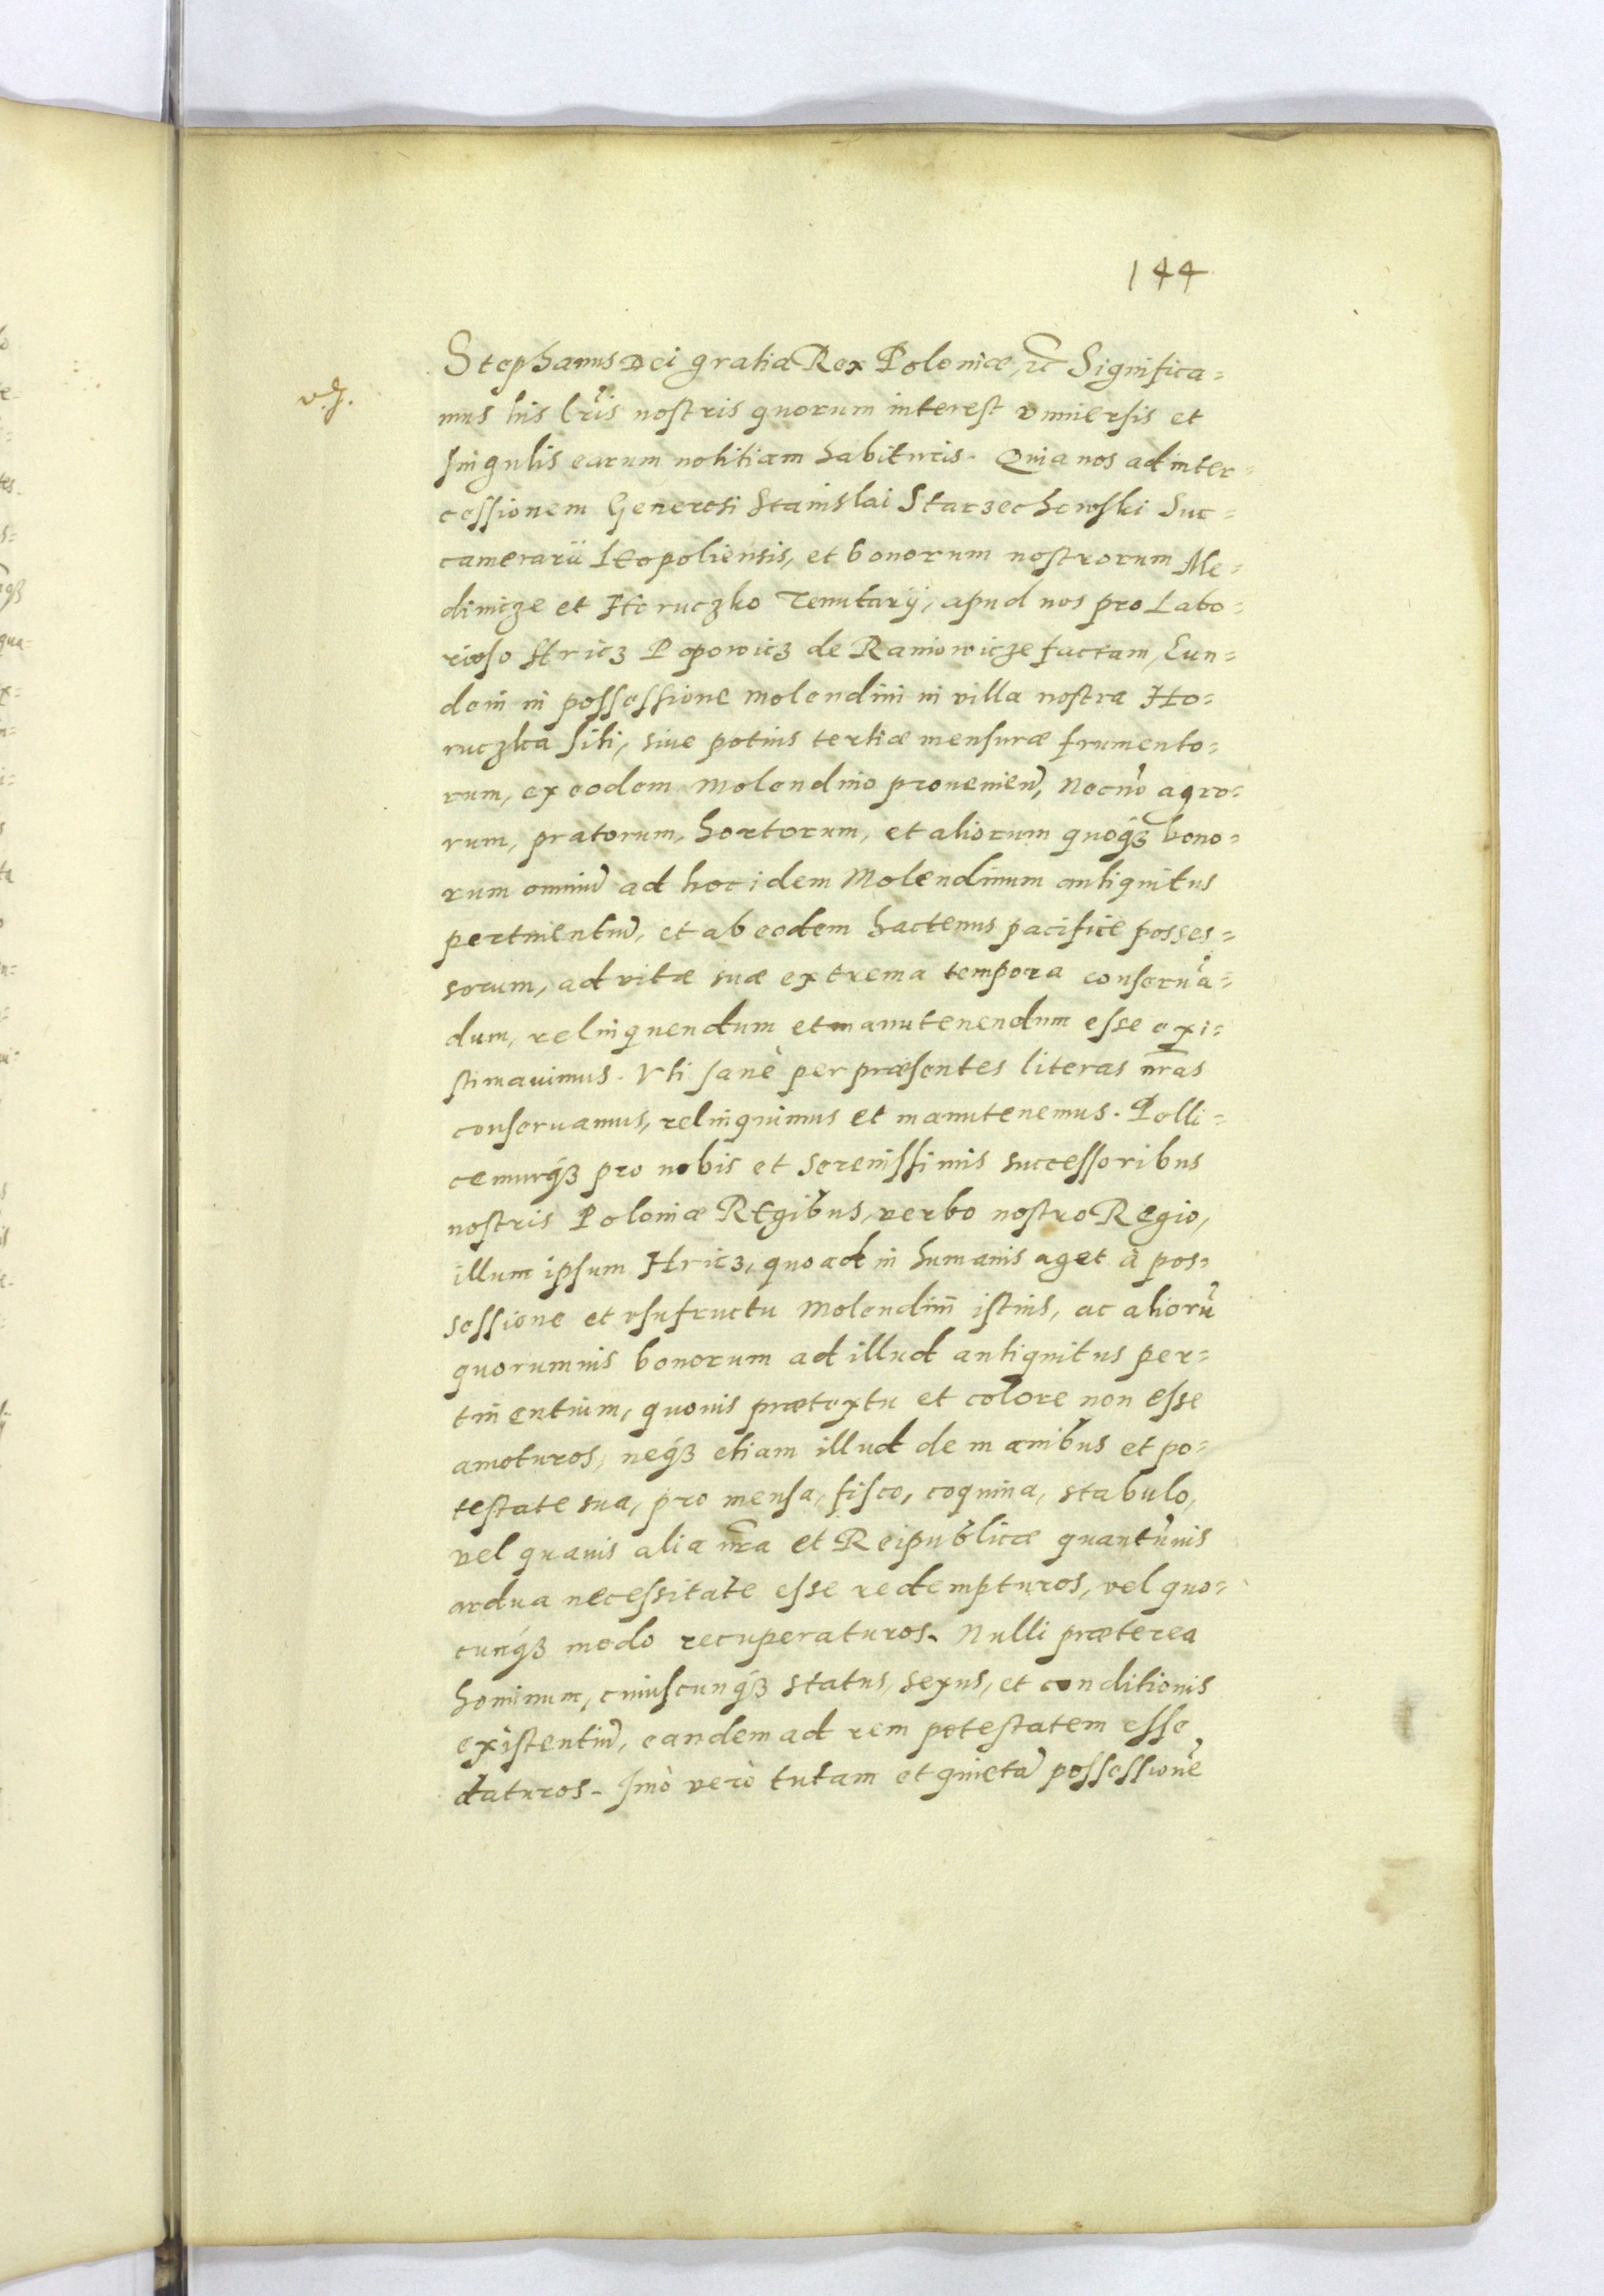 144
Stephanus Dei gratia Rex Poloniæ, &c̃ Significa=
mus his l̃ris nostris quorum interest vniuersis et
singulis earum notitiam habituris. Quia nos ad inter=
cessionem Generosi Stanislai Starzechowski Suc=
camerarii Leopoliensis, et bonorum nostrorum Me=
dinicze et Horuczko Tenutarij, apud nos pro Labo=
rioso Hricz Popowicz de Raniowicze factam, Eun=
dem in possessione molendini in villa nostra Ho=
ruczka siti, siue potius tertiæ mensuræ frumento=
rum, ex eodem Molendino prouenien̄, Necnõ agro=
rum, pratorum, hortorum, et aliorum quoq́ʒ bono=
rum omniũ ad hoc idem Molendinum antiquitus
pertinentiũ, et ab eodem hactenus pacifice posses=
sorum, ad vitæ suæ extrema tempora conseruã=
dum, relinquendum et manutenendum esse exi=
stimauimus. Vti sanè per præsentes literas nr̃as
conseruamus, relinquimus et manutenemus. Polli=
cemurq́ʒ pro nobis et Serenissimis successoribus
nostris Poloniæ Regibus, verbo nostro Regio,
illum ipsum Hricz, quoad in humanis aget à pos=
sessione et vsufructu Molendini istius, ac aliorũ
quorumuis bonorum ad illud antiquitus per=
tinentium, quouis prætextu et colore non esse
amoturos, neq́ʒ etiam illud de manibus et po=
testate sua, pro mensa, fisco, coquina, stabulo,
vel quauis alia nr̃a et Reipublicæ quantũuis
ardua necessitate esse redempturos, vel quo=
cunq́ʒ modo recuperaturos. Nulli præterea
hominum, cuiuscunq́ʒ status, sexus, et conditionis
existentiũ, eandem ad rem potestatem esse
daturos. Imò verò tutam et quietã possessionẽ